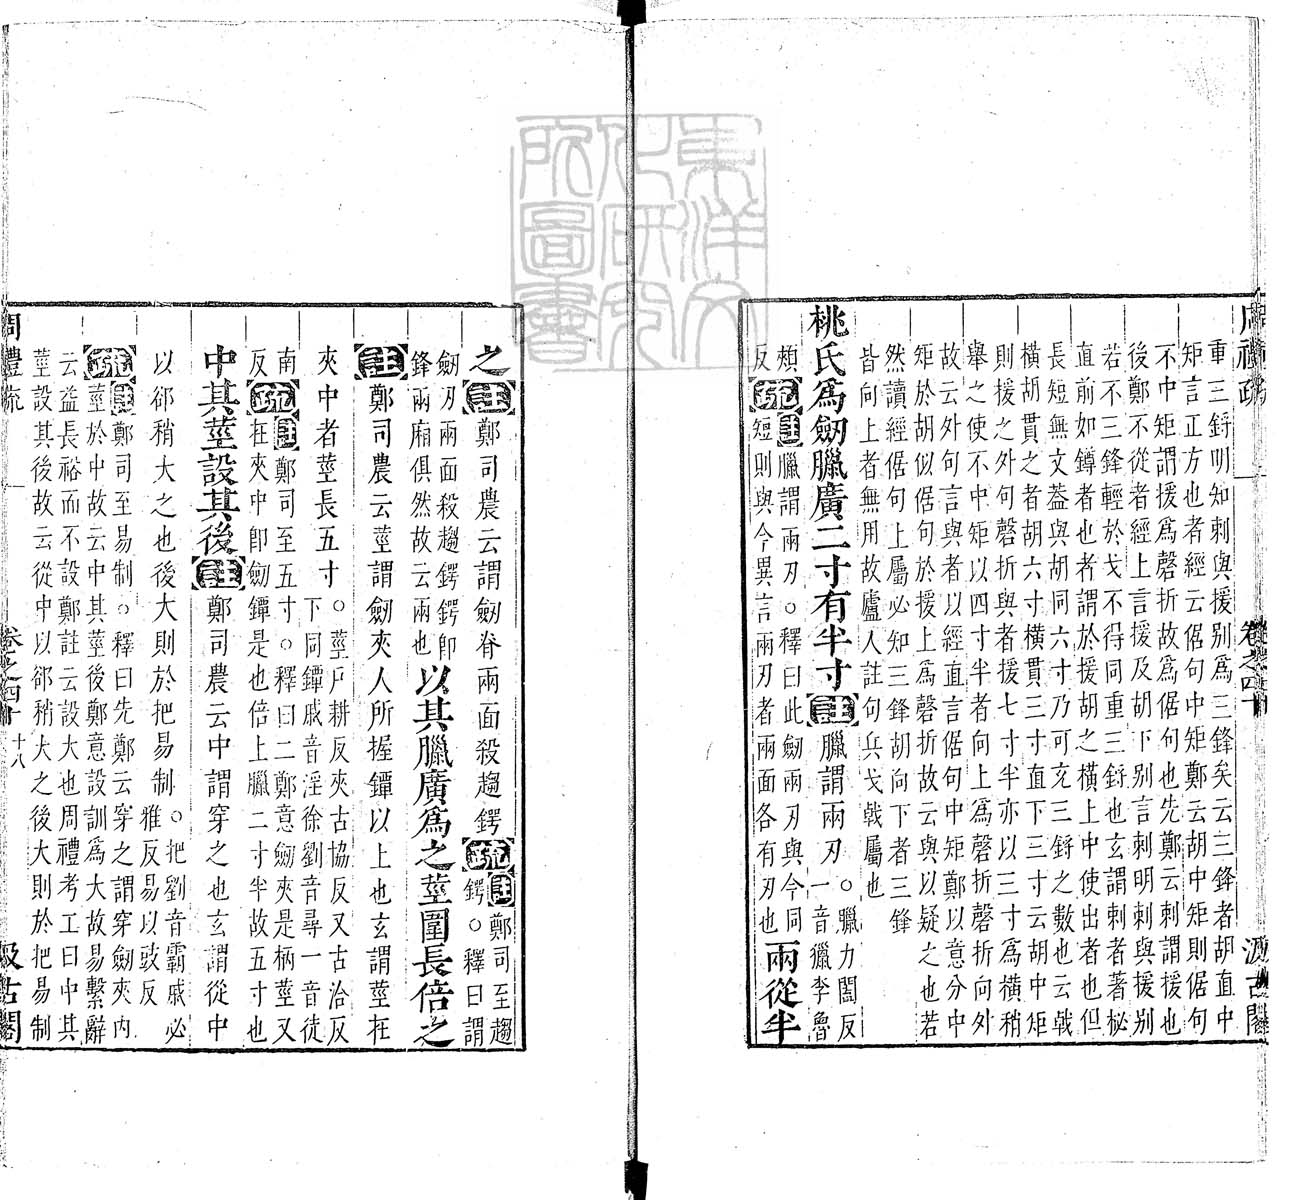 周禮疏
卷之四十
汲古閣
重三鋝明知刺與援别爲三鋒矣云三鋒者胡直中
矩言正方也者經云倨句中矩鄭云胡中矩則倨句
不中矩謂援爲磬折故爲倨句也先鄭云刺謂援也
後鄭不從者經上言援及胡下别言刺明刺與援别
若不三鋒輕於戈不得同重三鋝也玄謂刺者著柲
直前如鐏者也者謂於援胡之橫上中使出者也但
長短無文葢與胡同六寸乃可充三鋝之數也云戟
橫胡貫之者胡六寸橫貫三寸直下三寸云胡中矩
則援之外句磬折與者援七寸半亦以三寸爲橫稍
舉之使不中矩以四寸半者向上爲磬折磬折向外
故云外句言與者以經直言倨句中矩鄭以意分中
矩於胡似倨句於援上爲磬折故云與以疑之也若
然讀經倨句上屬必知三鋒胡向下者三鋒
皆向上者無用故廬人註句兵戈戟屬也
桃氏爲劒臘廣二寸有半寸註臘謂兩刃○臘力闔反
一音獵李魯
頰反疏註臘謂兩刃○釋曰此劒兩刃與今同
短則與今異言兩刃者兩面各有刃也兩從半
之註鄭司農云謂劒脊兩面殺趨鍔疏註鄭司至趨
鍔○釋曰謂
劒刃兩面殺趨鍔鍔即
鋒兩廂俱然故云兩也以其臘廣爲之莖圍長倍之
註鄭司農云莖謂劒夾人所握鐔以上也玄謂莖在
夾中者莖長五寸○莖戸耕反夾古協反又古洽反
下同鐔戚音淫徐劉音尋一音徒
南反疏註鄭司至五寸○釋曰二鄭意劒夾是柄莖又
在夾中即劒鐔是也倍上臘二寸半故五寸也
中其莖設其後註鄭司農云中謂穿之也玄謂從中
以郤稍大之也後大則於把易制○把劉音霸戚必
雅反易以豉反
疏註鄭司至易制○釋曰先鄭云穿之謂穿劒夾内
莖於中故云中其莖後鄭意設訓爲大故易繫辭
云益長裕而不設鄭註云設大也周禮考工曰中其
莖設其後故云從中以郤稍大之後大則於把易制
周禮疏
卷之四十
十八
汲古閣
東洋文
化研究
所圖書